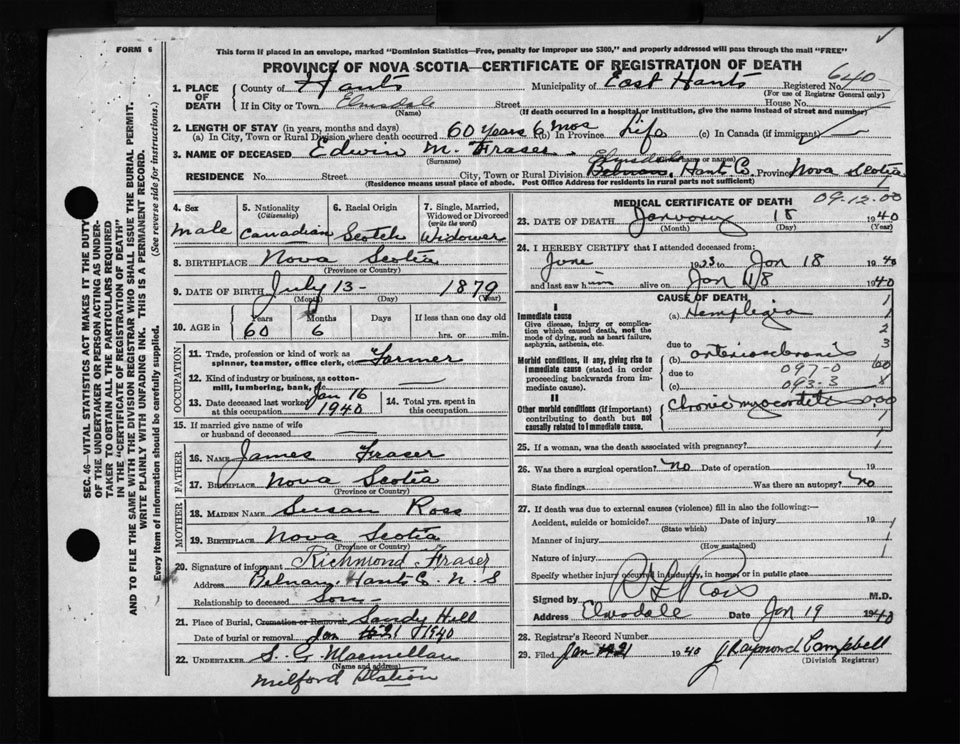 FORM 6
This form if placed in an envelope, marked "Dominion Statistics—Free, penalty for improper use $300," and properly addressed will pass through the mail "FREE"
PROVINCE OF NOVA SCOTIA—CERTIFICATE OF REGISTRATION OF DEATH
SEC. 46—VITAL STATISTICS ACT MAKES IT THE DUTY
OF THE UNDERTAKER OR PERSON ACTING AS UNDER-
TAKER TO OBTAIN ALL THE PARTICULARS REQUIRED
IN THE "CERTIFICATE OF REGISTRATION OF DEATH"
AND TO FILE THE SAME WITH THE DIVISION REGISTRAR WHO SHALL ISSUE THE BURIAL PERMIT.
WRITE PLAINLY WITH UNFADING INK. THIS IS A PERMANENT RECORD.
Every item of Information should be carefully supplied. (See reverse side for instructions.)
1. PLACE OF DEATH
County of Hants Municipality of East Hants Registered No. 640
(For use of Registrar General only)
If in City or Town Elmsdale Street House No.
(Name) (If death occurred in a hospital or institution, give the name instead of street and number)
2. LENGTH OF STAY (in years, months and days)
(a) In City, Town or Rural Division where death occurred 60 years 6 mos (b) In Province Life (c) In Canada (if immigrant)
3. NAME OF DECEASED Edwin M. Fraser
(Surname) (name or names)
Elmsdale
RESIDENCE No. Street City, Town or Rural Division Belnan, Hants C. Province Nova Scotia
(Residence means usual place of abode. Post Office Address for residents in rural parts not sufficient)
4. Sex male
5. Nationality (Citizenship) Canadian
6. Racial Origin Scotch
7. Single, Married, Widowed or Divorced (write the word) Widower
8. BIRTHPLACE Nova Scotia
(Province or Country)
9. DATE OF BIRTH July 13 - 1879
(Month) (Day) (Year)
10. AGE in Years 60 Months 6 Days If less than one day hrs. or min.
OCCUPATION
11. Trade, profession or kind of work as spinner, teamster, office clerk, etc. Farmer
12. Kind of industry or business, as cotton-mill, lumbering, bank, etc.
13. Date deceased last worked at this occupation Jan 16 1940
14. Total yrs. spent in this occupation
15. If married give name of wife or husband of deceased
FATHER
16. NAME James Fraser
17. BIRTHPLACE Nova Scotia
(Province or Country)
MOTHER
18. MAIDEN NAME Susan Ross
19. BIRTHPLACE Nova Scotia
(Province or Country)
20. Signature of informant Richmond Fraser
Address Belnan, Hants C. N S
Relationship to deceased Son
21. Place of Burial, Cremation or Removal Sandy Hill
Date of burial or removal Jan 21 1940
22. UNDERTAKER S. G Macmillan
(Name and address)
Milford Station
MEDICAL CERTIFICATE OF DEATH 09-12.00
23. DATE OF DEATH January 18 1940
(Month) (Day) (Year)
24. I HEREBY CERTIFY that I attended deceased from:
June to Jan 18 1940
and last saw him alive on Jan 18 1940
CAUSE OF DEATH
I
Immediate cause
Give disease, injury or complication which caused death, not the mode of dying, such as heart failure, asphyxia, asthenia, etc.
(a) Hemiplegia
due to
Morbid conditions, if any, giving rise to immediate cause (stated in order proceeding backwards from immediate cause).
(b) arteriosclerosis
due to 097-0
(c) 093-3
II
Other morbid conditions (if important) contributing to death but not causally related to immediate cause.
Chronic myocarditis
25. If a woman, was the death associated with pregnancy?
26. Was there a surgical operation? no Date of operation 19
State findings Was there an autopsy? no
27. If death was due to external causes (violence) fill in also the following:—
Accident, suicide or homicide? Date of injury 19
(State which)
Manner of injury
(How sustained)
Nature of injury
Specify whether injury occurred in industry, in home, or in public place
Signed by M.D.
Address Elmsdale Date Jan 19 1940
28. Registrar's Record Number
29. Filed Jan 21 1940 J Raymond Campbell
(Division Registrar)